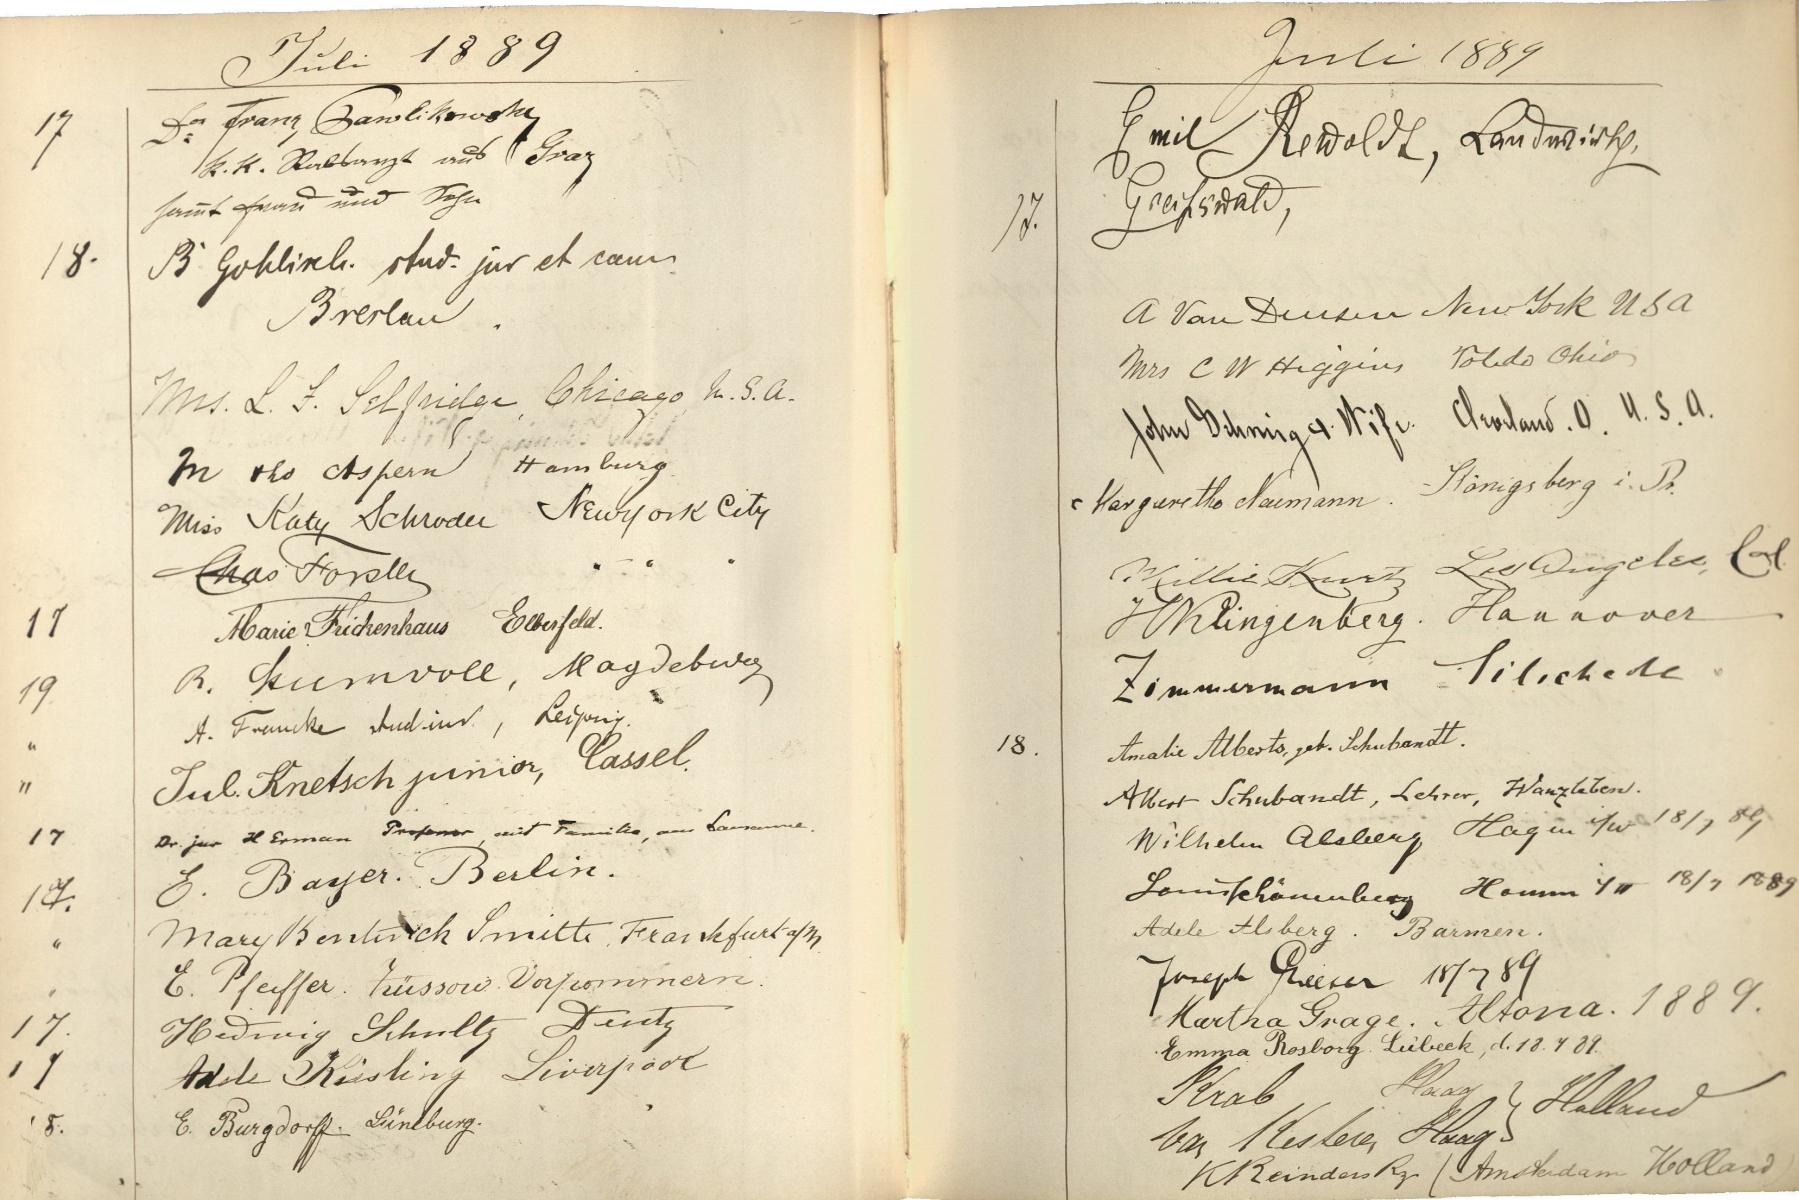 Juli 1889
17
Dr. Franz Pawlikowsky
k.k. aus Graz
samt Frau und Sohn
18. B Gohlisch. stud. jur et cam
Breslau.
Mrs. L. F. Selfridge, Chicago, U.S.A.
M Aspern Hamburg
Miss Katy Schroder New York City
Chas Forster " " "
17 Marie Frickenhaus Elberfeld.
19 R. Magdeburg
" A. Francke stud. , Leipzig.
" Jul. Knetsch junior, Cassel.
17 Dr. jur H Erman Professor, mit Familie, aus Lausanne.
17. E. Bayer. Berlin.
" Mary Bentwick Smith, Frankfurt a/M
" E. Pfeiffer. Züssow. Vorpommern.
17. Hedwig Schultz Deutz
17 Adele Kiesling Liverpool
18. E. Burgdorff. Lüneburg.
Juli 1889
Emil Rewoldt, Landwirth,
17. Greifswald,
A Van Deusen New York USA
Mrs C W Higgins Toledo Ohio
John Dehnig & Wife. Cleveland. O. U.S.A.
Margarethe Naumann. Königsberg i. Pr.
Millie Kurtz Los Angeles, Cal.
H Klingenberg. Hannover
Zimmermann Silschede
18. Amalie Alberts, geb. Schubandt.
Albert Schubandt, Lehrer, Wanzleben.
Wilhelm Alsberg Hagen i/W 18/7 89
Louis Schönenberg Hamm i/W 18/7 1889
Adele Alsberg. Barmen.
Joseph 18/7 89
Martha Grage. Altona. 1889.
Emma Rosborg Lübeck, d. 18.7 89.
Krab Haag } Holland
van Kesteren Haag }
K Reinders Rz (Amsterdam Holland)